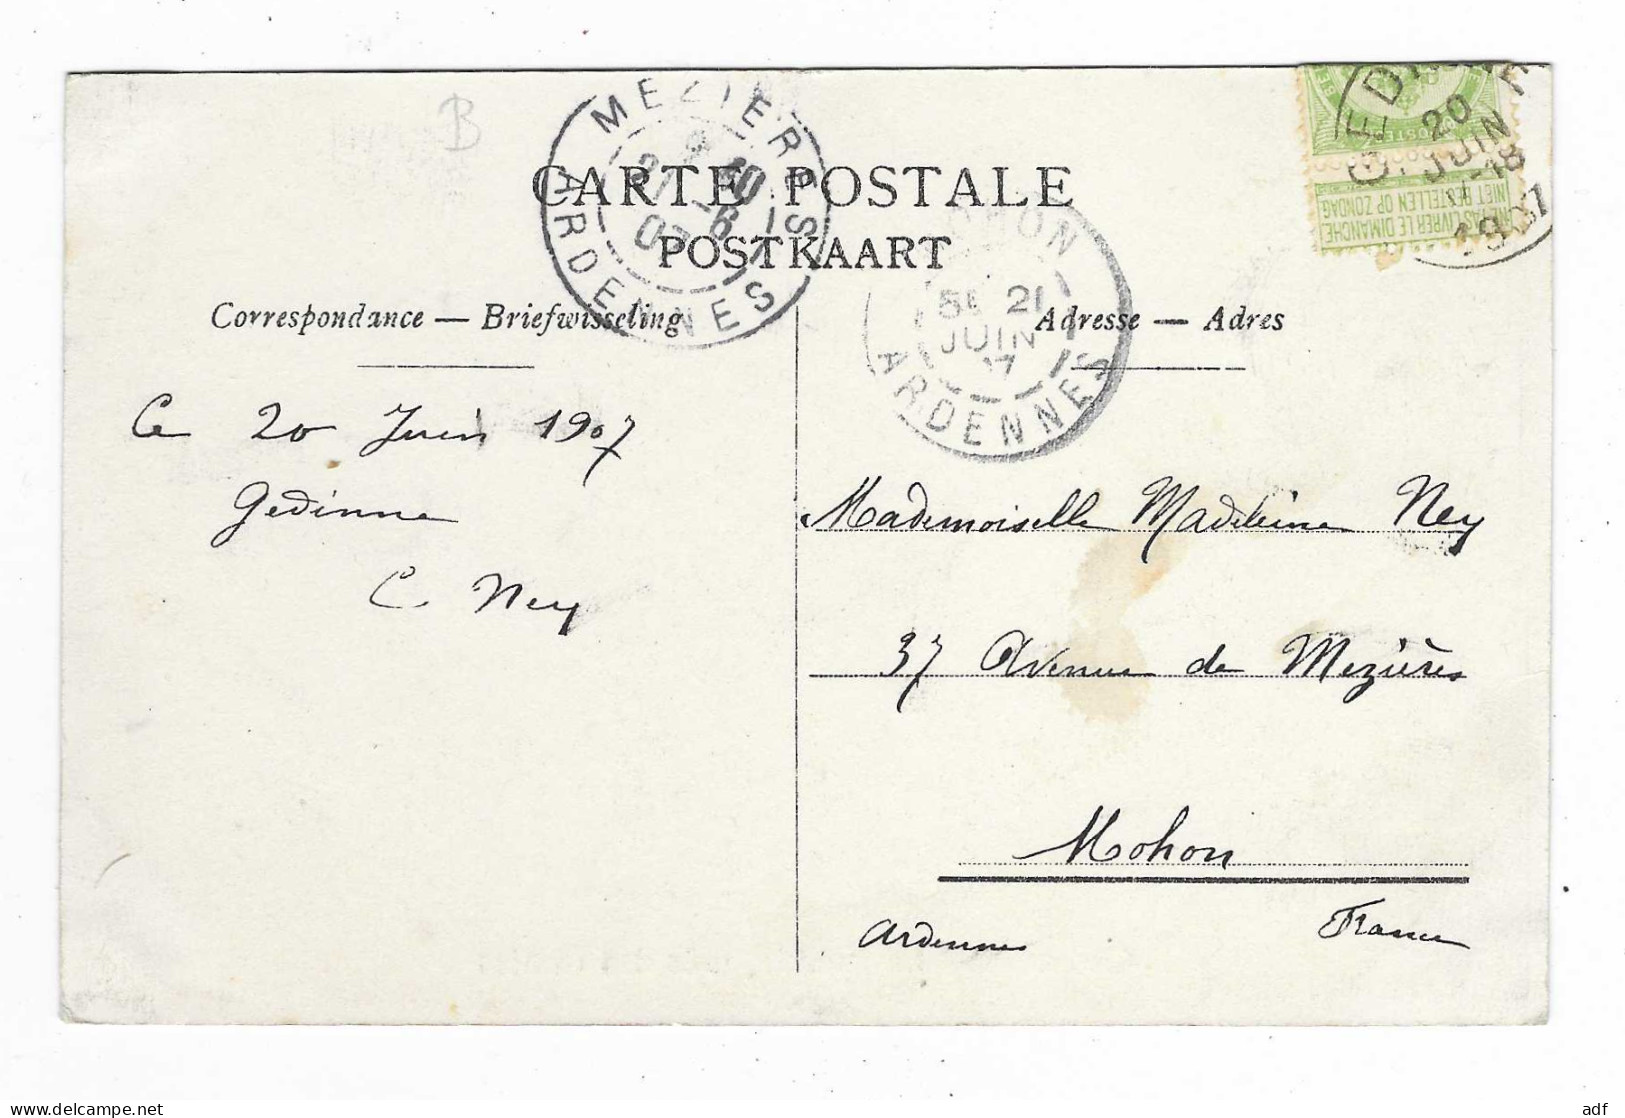 B
CARTE POSTALE
POSTKAART
MEZIERES
9 40
21-6
07
ARDENNES
MOHON
5E 21
JUIN
07
ARDENNES
GEDINNE
20
JUIN
17-18
1907
NE PAS LIVRER LE DIMANCHE
NIET BESTELLEN OP ZONDAG
Correspondance — Briefwisseling
Ce 20 Juin 1907
Gedinne
C Ney
Adresse — Adres
Mademoiselle Madeleine Ney
37 Avenue de Mezières
Mohon
Ardennes France
adf